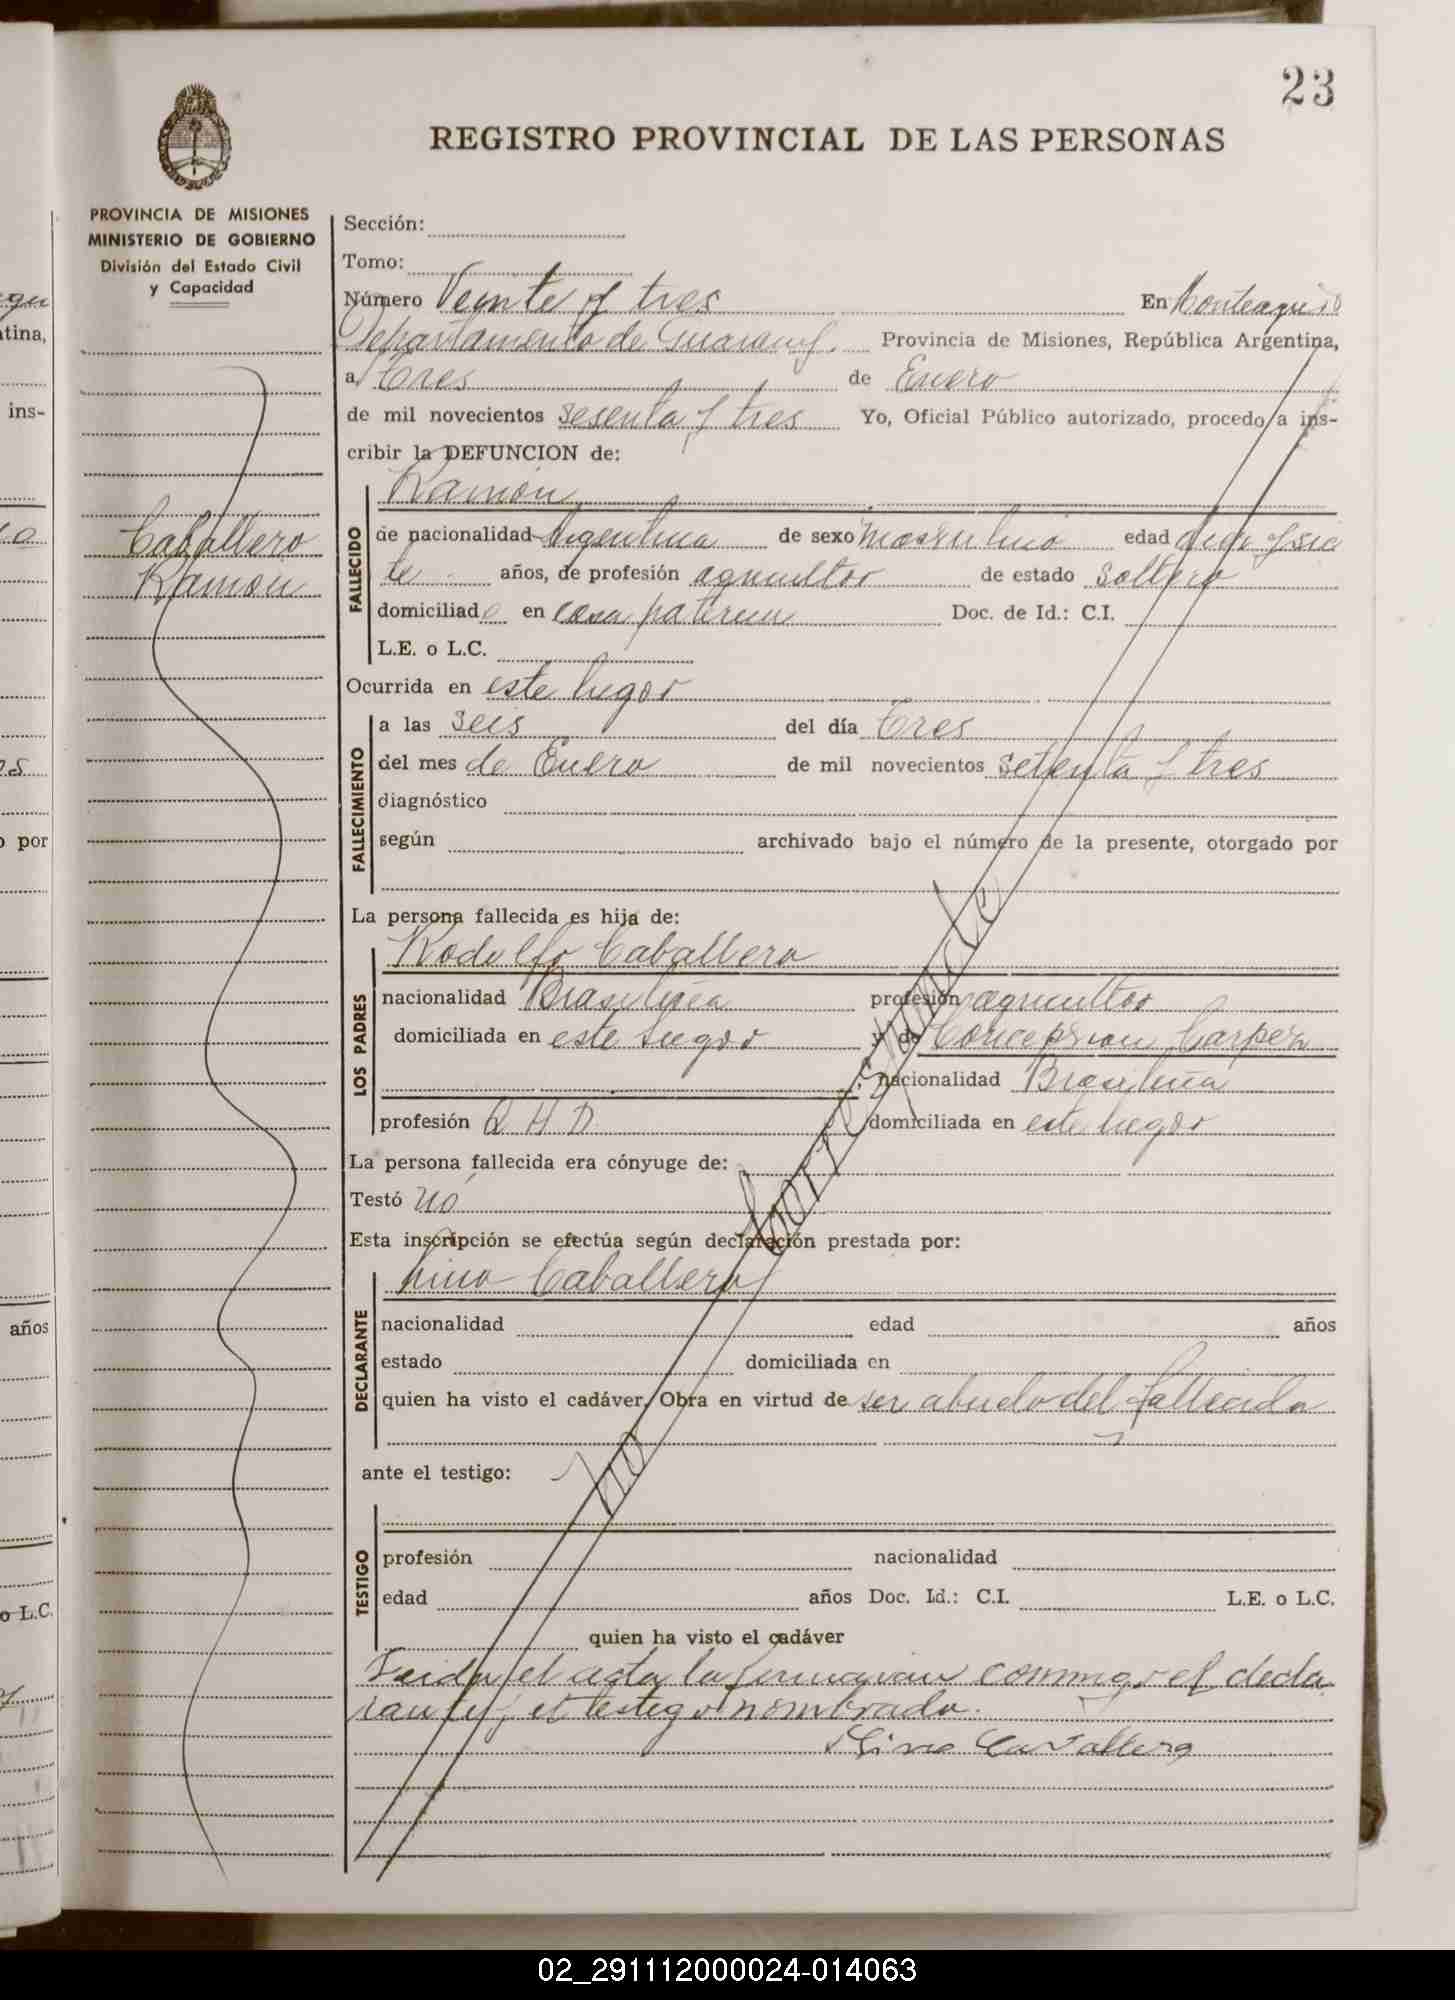 23
REGISTRO PROVINCIAL DE LAS PERSONAS
PROVINCIA DE MISIONES
MINISTERIO DE GOBIERNO
División del Estado Civil
y Capacidad
Caballero
Ramón
Sección:
Tomo:
Número Veinte y tres En Monteagudo
Departamento de Guarany. Provincia de Misiones, República Argentina,
a Tres de Enero
de mil novecientos sesenta y tres Yo, Oficial Público autorizado, procedo a ins-
cribir la DEFUNCION de:
Ramón
FALLECIDO
de nacionalidad Argentina de sexo masculino edad diez y sie
te años, de profesión agricultor de estado Soltero
domiciliado en casa paterna Doc. de Id.: C.I.
L.E. o L.C.
Ocurrida en este lugar
FALLECIMIENTO
a las seis del día Tres
del mes de Enero de mil novecientos setenta y tres
diagnóstico
según archivado bajo el número de la presente, otorgado por
La persona fallecida es hija de:
LOS PADRES
Rodolfo Caballero
nacionalidad Brasileña profesión agricultor
domiciliada en este lugar y de Concepcion
nacionalidad Brasileña
profesión Q H D. domiciliada en este lugar
La persona fallecida era cónyuge de:
Testó no
Esta inscripción se efectúa según declaración prestada por:
DECLARANTE
Lino Caballero
nacionalidad edad años
estado domiciliada en
quien ha visto el cadáver. Obra en virtud de ser abuelo del fallecido
ante el testigo:
TESTIGO
profesión nacionalidad
edad años Doc. Id.: C.I. L.E. o L.C.
quien ha visto el cadáver
Leida el acta la firmavan conmigo el decla
rante y el testigo nombrado.
Lino Cavallero
no Corresponde
tina,
ins-
o por
años
o L.C.
02_291112000024-014063